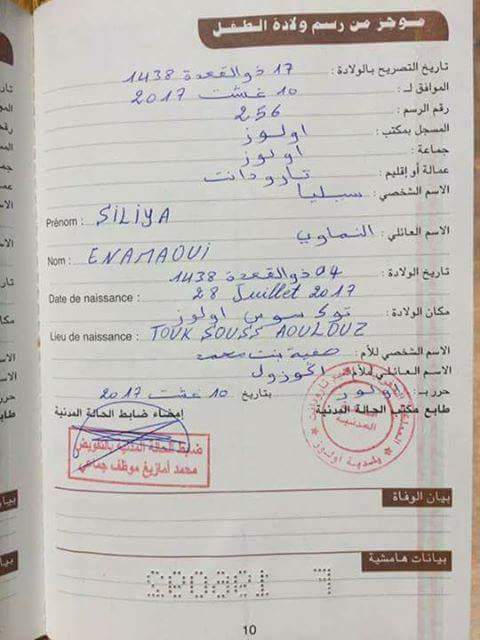 موجز من رسم ولادة الطفل
تاريخ التصريح بالولادة : 17 ذو القعدة 1438
الموافق لـ : 10 غشت 2017
رقم الرسم : 256
المسجل بمكتب : اولوز
جماعة : اولوز
عمالة أو إقليم : تارودانت
الاسم الشخصي : سيليا
Prénom : SILIYA
الاسم العائلي : النماوي
Nom : ENAMAOUI
تاريخ الولادة : 04 ذو القعدة 1438
Date de naissance : 28 Juillet 2017
مكان الولادة : توك سوس اولوز
Lieu de naissance : TOUK SOUSS AOULOUZ
الاسم الشخصي للأم : صفية بنت محمد
الاسم العائلي للأم :
حرر بـ : اولوز بتاريخ 10 غشت 2017
طابع مكتب الحالة المدنية إمضاء ضابط الحالة المدنية
ضابط الحالة المدنية بالتفويض
محمد أمازيغ موظف جماعي
بيان الوفاة
بيانات هامشية
10